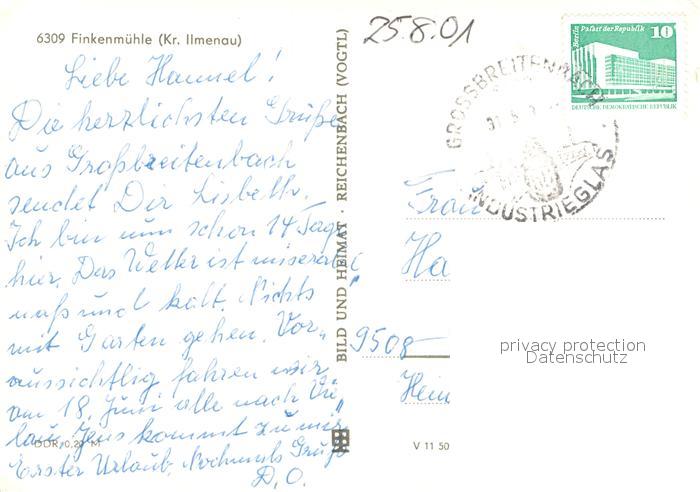 6309 Finkenmühle (Kr. Ilmenau)
25.8.01
Liebe Hannel!
Die herzlichsten Grüße
aus Großbreitenbach
sendet Dir Lisbeth.
Ich bin nun schon 14 Tage
hier. Das Wetter ist miserabel
naß und kalt. Nichts
mit Garten gehen. Vor-
aussichtlig fahren wir
am 18. Juni alle nach
Jens kommt zu mir
Erster Urlaub. Nochmals Grüße
D. O.
DDR 0,20 M
BILD UND HEIMAT · REICHENBACH (VOGTL)
V 11 50
Berlin Palast der Republik
10
DEUTSCHE DEMOKRATISCHE REPUBLIK
GROSSBREITENBACH
INDUSTRIEGLAS
Frau
Ha
9508
Hein
privacy protection
Datenschutz